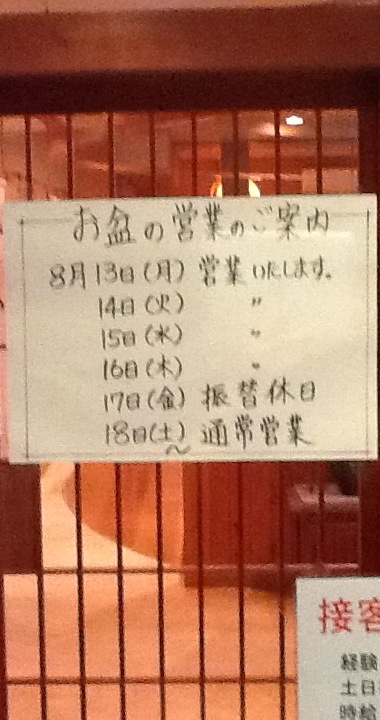 お盆の営業のご案内
8月13日(月) 営業いたします。
14日(火) 〃
15日(水) 〃
16日(木) 〃
17日(金) 振替休日
18日(土) 通常営業
〜
接客
経験
土日
時給